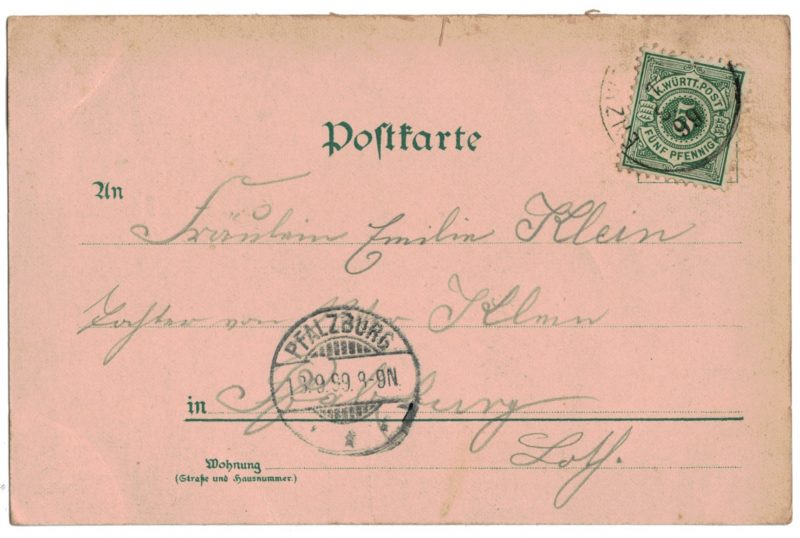 K. WÜRTT. POST
5
FÜNF PFENNIG
Postkarte
An
Fräulein Emilie Klein
Tochter von Klein
PFALZBURG
13.9.99.8-9N.
in Pfalzburg
Loth.
Wohnung
(Straße und Hausnummer.)